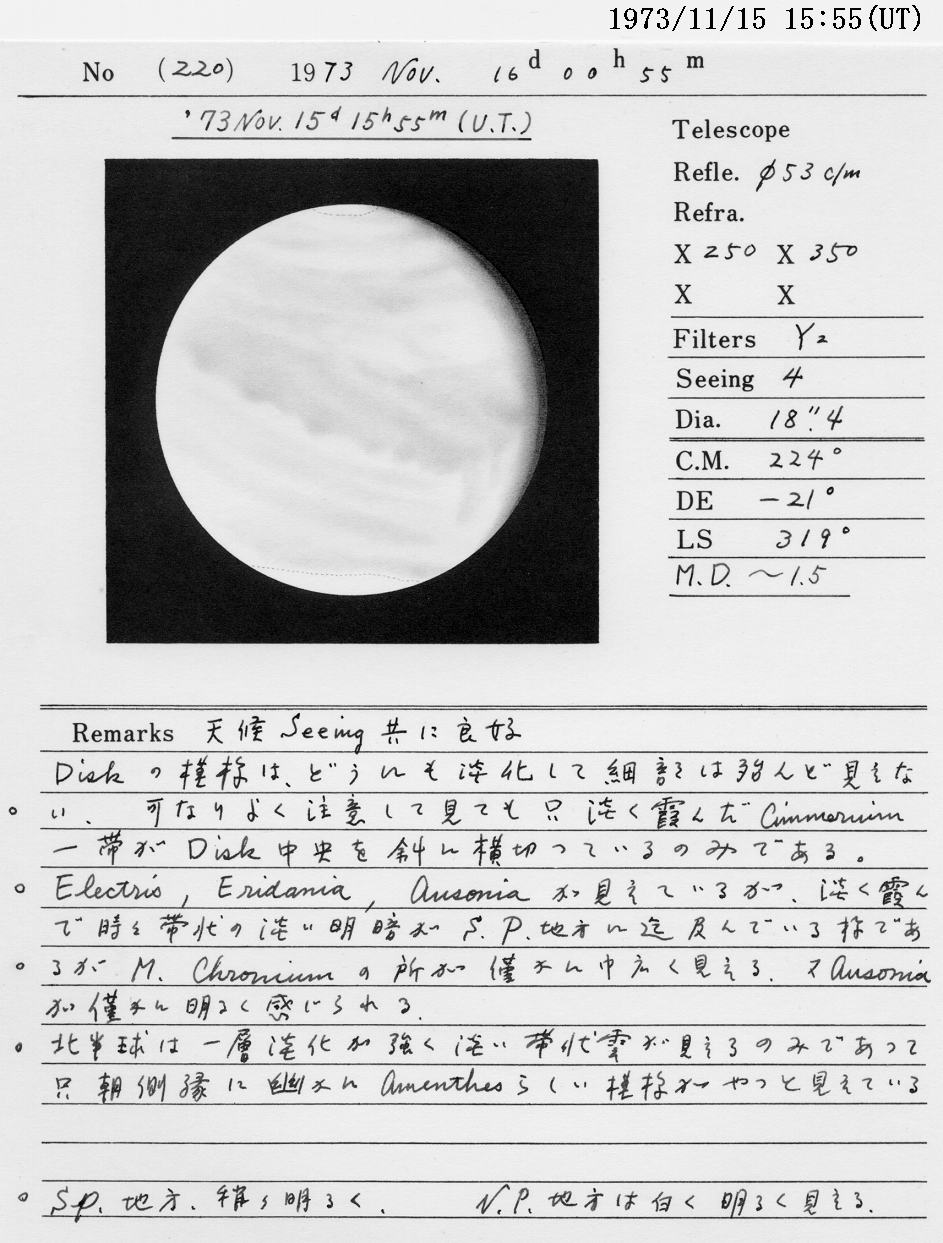 1973/11/15 15:55(UT)
No (220) 1973 Nov. 16d 00h 55m
'73 Nov. 15d 15h 55m (U.T.)
Telescope
Refle. φ53 c/m
Refra.
X 250 X 350
X X
Filters Y2
Seeing 4
Dia. 18".4
C.M. 224°
DE −21°
LS 319°
M.D. ~1.5
Remarks 天候 Seeing 共に良好
Diskの模様は、どうにも淡化して細部は殆んど見えな
い、 可なりよく注意して見ても只淡く霞んだ Cimmerium
一帯が Disk 中央を斜に横切っているのみである。
Electris, Eridania, Ausonia が見えているが、淡く霞ん
で時々帯状の淡い明暗が S.P.地方に迄及んでいる様であ
るが M. Chronium の所が僅かに巾広く見える. 又 Ausonia
が僅かに明るく感じられる.
北半球は一層淡化が強く淡い帯状雲が見えるのみであって
只朝側縁に幽かに Amenthes らしい模様がやっと見えている
S.P. 地方. 稍々明るく. N.P. 地方は白く明るく見える.